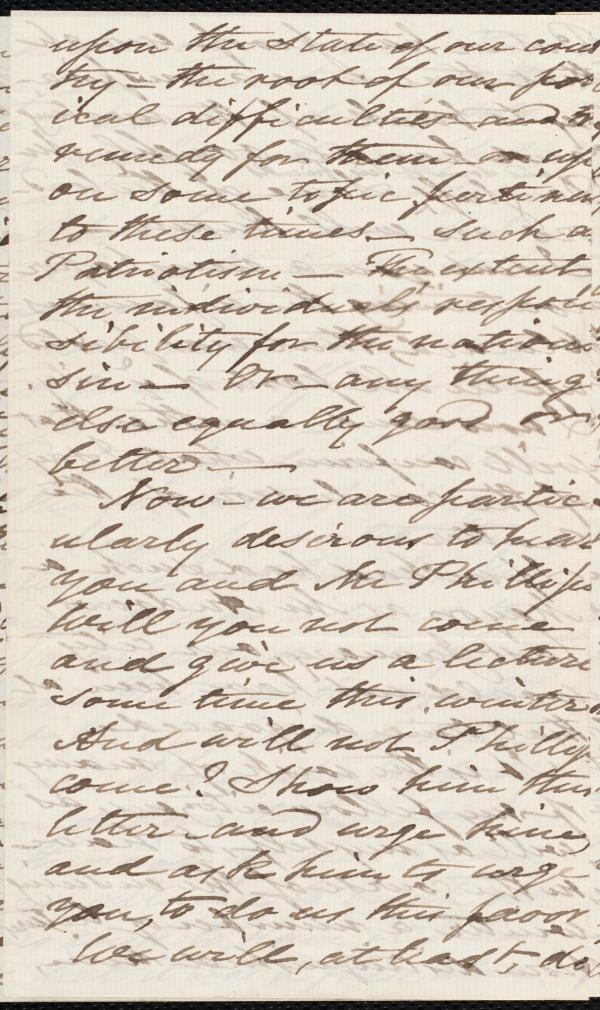 upon the state of our coun
try – the root of our polit
ical difficulties and the
remedy for them or up
on some topic pertinent
to these times – Such as
Patriotism – The extent of
the individual's respon
sibility for the nation's
sin – Or – any thing
else equally good or
better –
Now – we are partic
ularly desirous to hear
you and Mr Phillips
Will you not come
and give us a lecture
some time this winter
And will not Phillips
come? Show him this
letter and urge him
and ask him to urge
you, to do us this favor
We will, at least, di